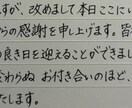 すが、改めまして本日ここにい
らの感謝を申し上げます。皆
の良き日を迎えることができまし
わらぬ お付き合いのほど、
たします。